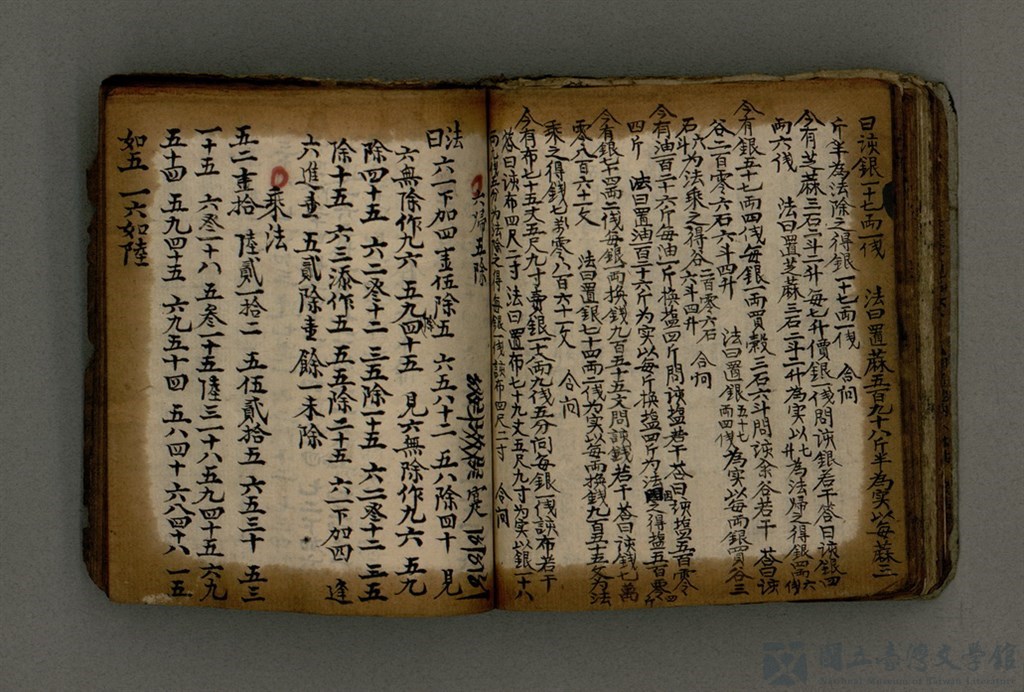 曰該銀一十七兩一伐 法曰置蔴五百九十八斤半為实以每蔴三
斤半為法除之得銀一十七兩一伐 合问
今有芝蔴三石二斗二升每七升價銀一伐問該銀若干答曰該銀四
兩六伐 法曰置芝蔴三石二斗二升為实以七為法歸之得銀四兩六伐
今有銀五十七兩四伐每銀一兩買穀三石六斗問該余谷若干 荅曰該
谷二百零六石六斗四升 法曰置銀五十七兩四伐為实以每兩銀買谷三
石六斗為法乘之得谷二百零六石六斗四升 合问
今有油百二十六斤每油一斤换塩四斤問該塩若干 荅曰該塩五百零
四斤 法曰置油百二十六斤为实以每斤换塩四斤为法因之得塩五百零四斤
今有銀七十四兩二伐每銀一兩换錢九百五十五文問該錢若干 荅曰該錢七萬
零八百六十一文 法曰置銀七十四兩二伐为实以每兩换錢九百五十五文为法
乘之得錢七万零八百六十一文 合问
今有布七十五丈五尺九寸賣銀一十八兩九伐五分问每銀一伐該布若干
荅曰該布四尺二寸 法曰置布七十九丈五尺九寸为实以銀一十八
兩九伐五分为法除之得每銀一伐該布四尺二寸 合问
六归五除
法曰 六一下加四 壹伍除五 六五八十二 五六除四十 見
六無除作九六 五九四十五 見六無除作九六 五九
除四十五 六二叁十二 三五除一十五 六二叁十二 三五
除十五 六三添作五 五五除二十五 六一下加四 逢
六進壹 五貳除壹 餘一未除
乘法
五二壹拾 陸貳一拾二 五伍貳拾五 六五三十 五三
一十五 六叁一十八 五叁一十五 陸三一十八 五九四十五 六九
五十四 五九四十五 六九五十四 五八四十 六八四十八 一五
如五 一六如陸
國立臺灣文學館
National Museum of Taiwan Literature